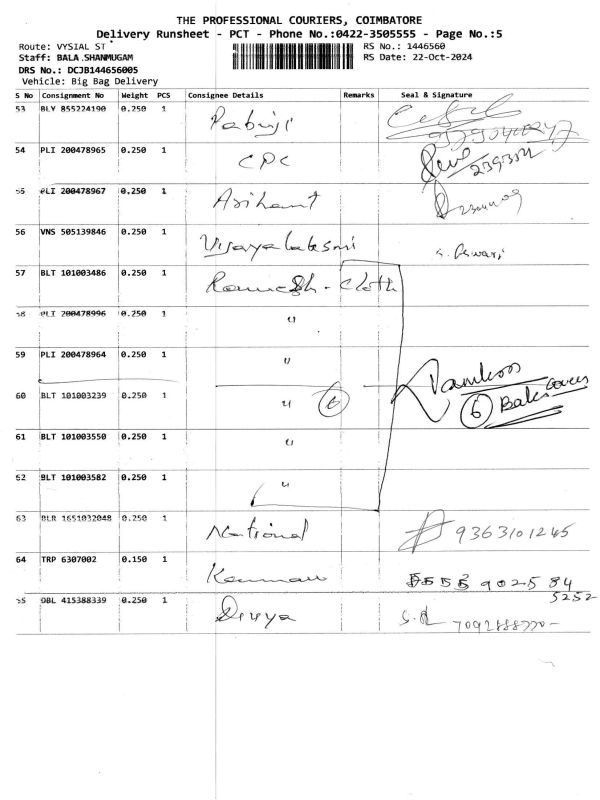 THE PROFESSIONAL COURIERS, COIMBATORE
Delivery Runsheet - PCT - Phone No.:0422-3505555 - Page No.:5
Route: VYSIAL ST
RS No.: 1446560
Staff: BALA.SHANMUGAM
RS Date: 22-Oct-2024
DRS No.: DCJB144656005
Vehicle: Big Bag Delivery
S No Consignment No Weight PCS Consignee Details Remarks Seal & Signature
53 BLY 855224190 0.250 1
54 PLI 200478965 0.250 1 CPC
55 PLI 200478967 0.250 1 Arihant
56 VNS 505139846 0.250 1 Vijayalaksmi
57 BLT 101003486 0.250 1 Ramesh - Cloth
58 PLI 200478996 0.250 1 "
59 PLI 200478964 0.250 1 "
60 BLT 101003239 0.250 1 " 6
6 Bales covers
61 BLT 101003550 0.250 1 "
62 BLT 101003582 0.250 1 "
63 BLR 1651032048 0.250 1 National 9363101245
64 TRP 6307002 0.150 1 902584
5252
55 OBL 415388339 0.250 1 Divya